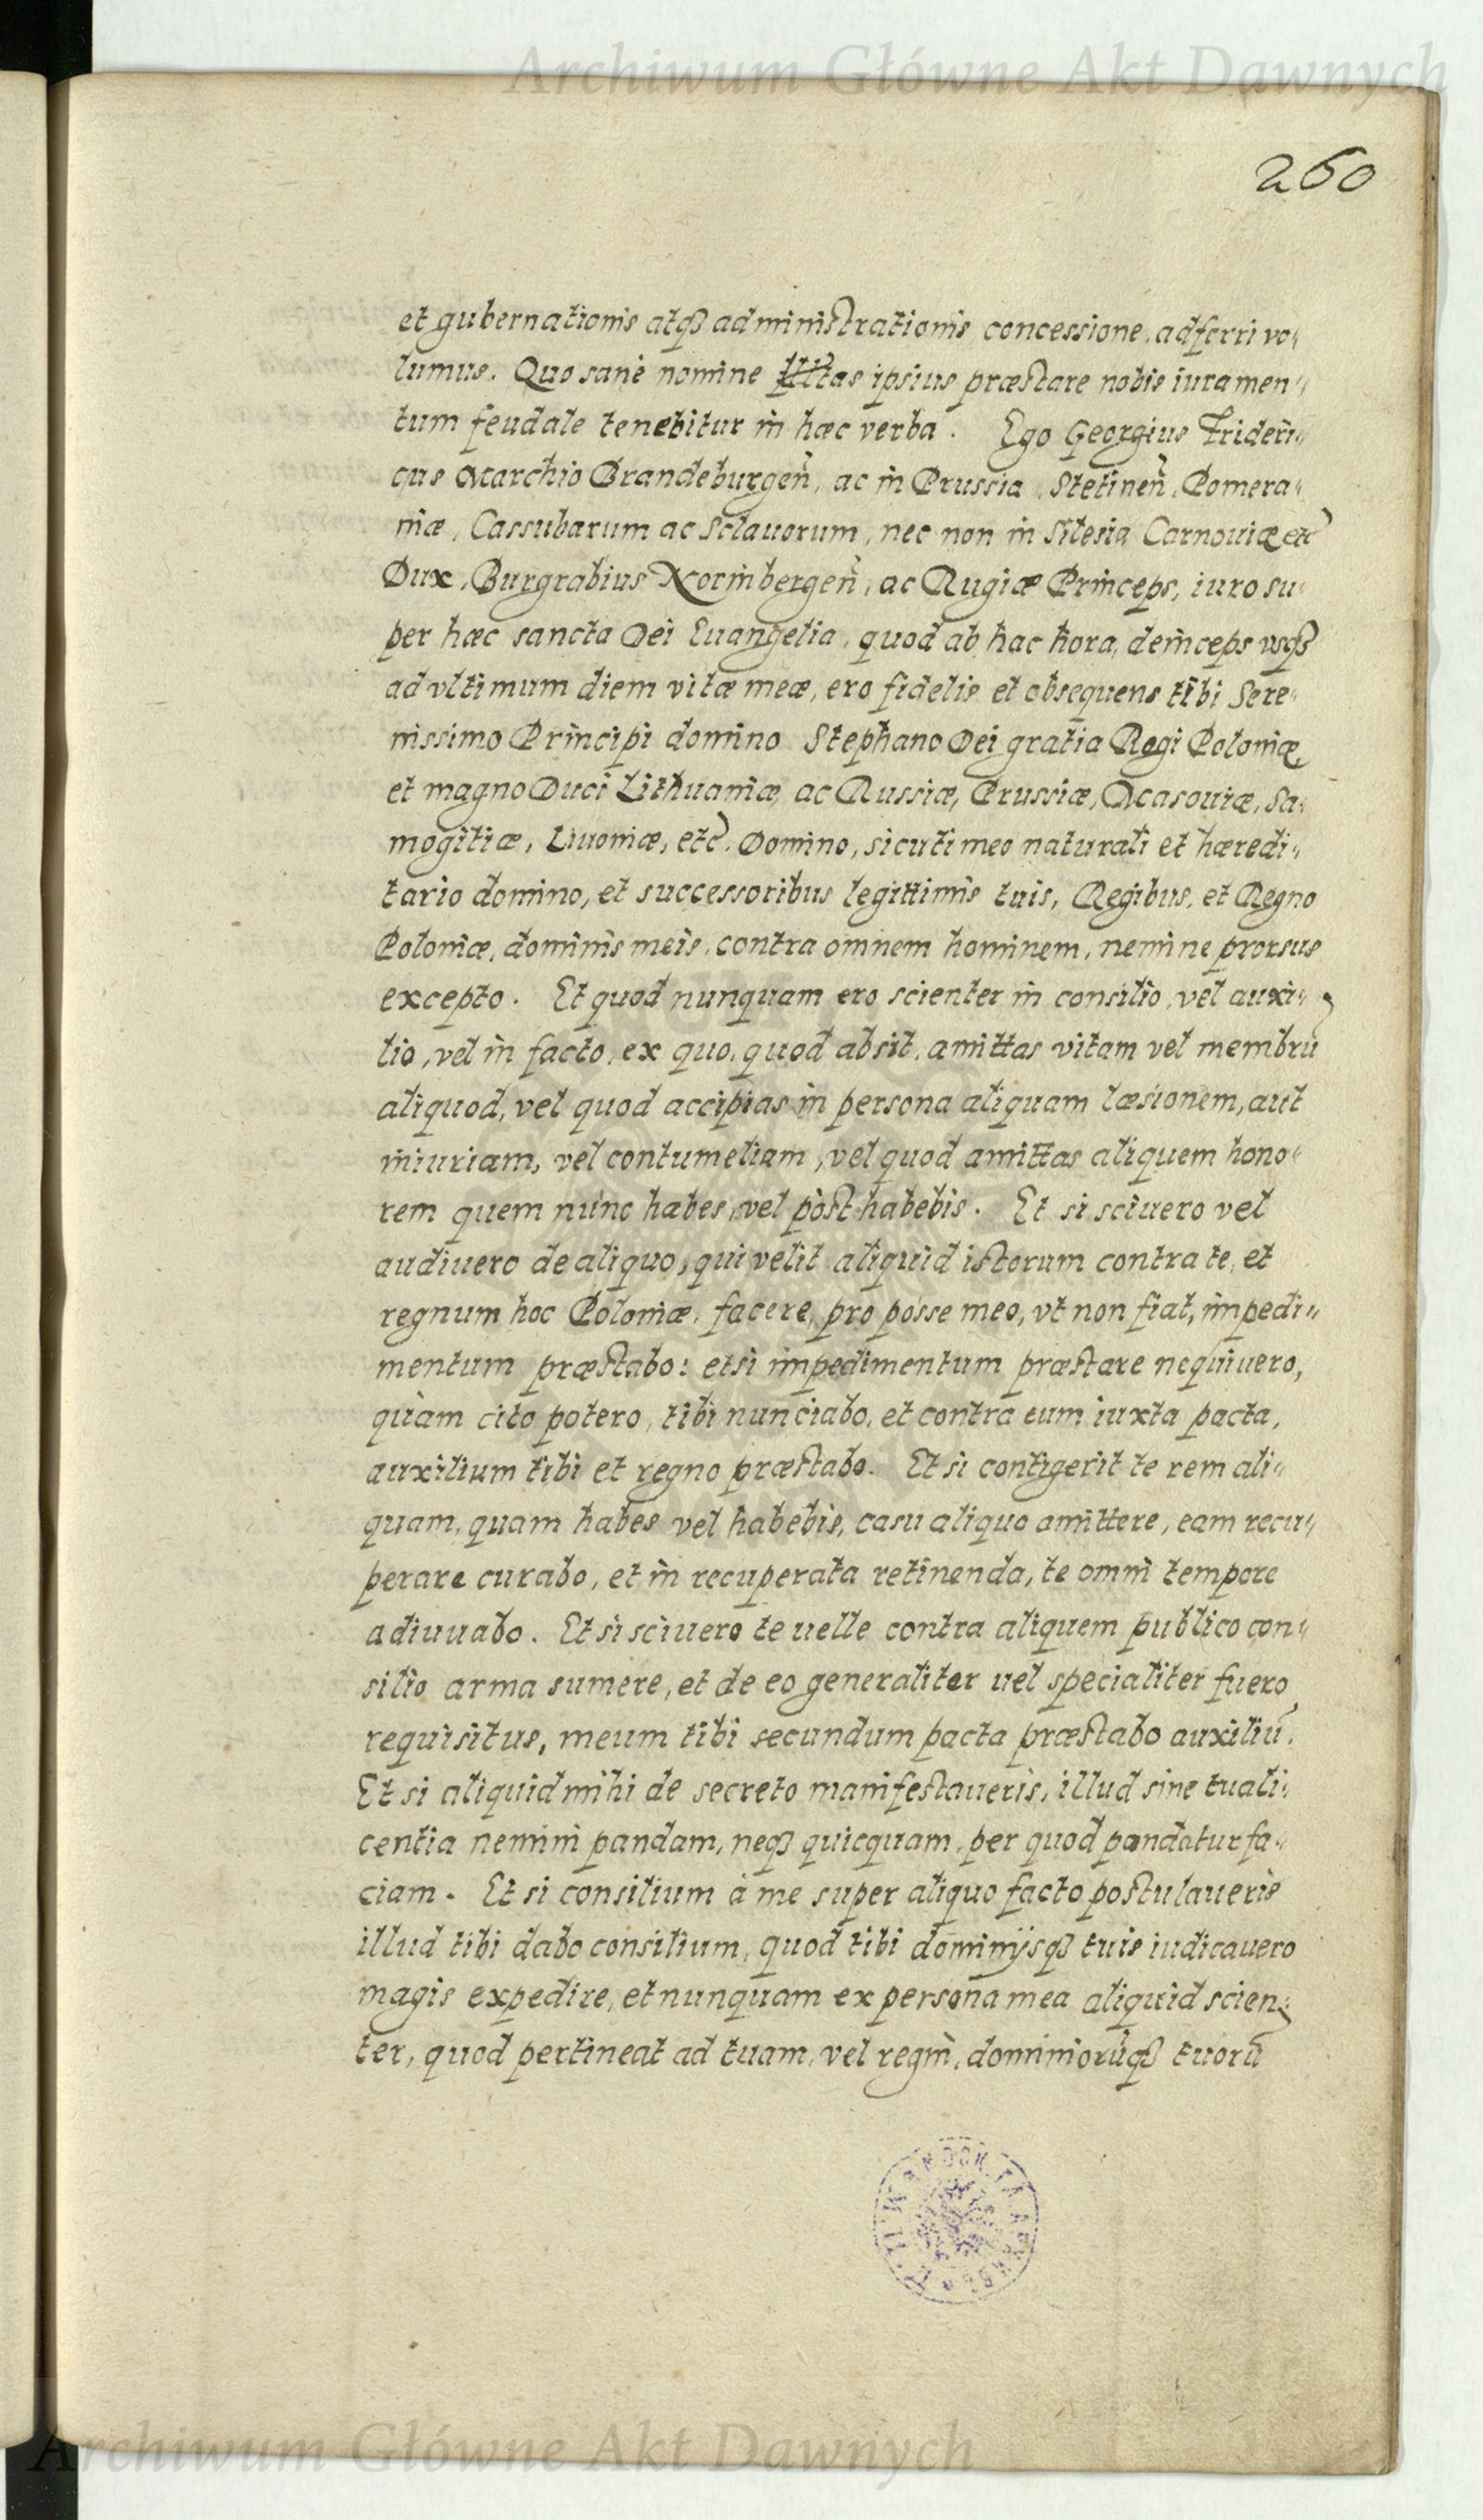 Archiwum Główne Akt Dawnych
260
et gubernationis atqꝫ administrationis concessione, adferri vo„
lumus. Quo sanè nomine Illtas ipsius præstare nobis iuramen„
tum feudale tenebitur in hæc verba. Ego Georgius Frideri„
cus Marchio Brandeburgeñ, ac in Prussia, Stetineñ, Pomera„
niæ, Cassubarum ac Sclauorum, nec non in Silesia Carnouiæ etc̃
Dux, Burgrabius Norinbergeñ, ac Rugiæ Princeps, iuro su„
per hæc sancta Dei Euangelia, quod ab hac hora, deinceps vsqꝫ
ad vltimum diem vitæ meæ, ero fidelis et obsequens tibi Sere„
nissimo Principi domino Stephano Dei gratia Regi Poloniæ,
et magno Duci Lithuaniæ, ac Russiæ, Prussiæ, Masouiæ, Sa„
mogitiæ, Liuoniæ, etc̃. Domino, sicuti meo naturali et hæredi„
tario domino, et successoribus legittimis tuis, Regibus, et Regno
Poloniæ, dominis meis, contra omnem hominem, nemine prorsus
excepto. Et quod nunquam ero scienter in consilio, vel auxi„
lio, vel in facto, ex quo, quod absit, amittas vitam vel membrũ
aliquod, vel quod accipias in persona aliquam læsionem, aut
iniuriam, vel contumeliam, vel quod amittas aliquem hono„
rem quem nunc habes, vel pòst habebis. Et si sciuero vel
audiuero de aliquo, qui velit aliquid istorum contra te, et
regnum hoc Poloniæ, facere, pro posse meo, vt non fiat, impedi„
mentum præstabo: et si impedimentum præstare nequiuero,
quàm cito potero, tibi nunciabo, et contra eum iuxta pacta,
auxilium tibi et regno præstabo. Et si contigerit te rem ali„
quam, quam habes vel habebis, casu aliquo amittere, eam recu„
perare curabo, et in recuperata retinenda, te omni tempore
adiuuabo. Et si sciuero te uelle contra aliquem publico con„
silio arma sumere, et de eo generaliter uel specialiter fuero
requisitus, meum tibi secundum pacta præstabo auxiliũ.
Et si aliquid mihi de secreto manifestaueris, illud sine tua li„
centia nemini pandam, neqꝫ quicquam, per quod pandatur fa„
ciam. Et si consilium à me super aliquo facto postulaueris
illud tibi dabo consilium, quod tibi dominÿsqꝫ tuis iudicauero
magis expedire, et nunquam ex persona mea aliquid scien„
ter, quod pertineat ad tuam, vel regni, dominiorũqꝫ tuorũ
Archiwum Główne Akt Dawnych